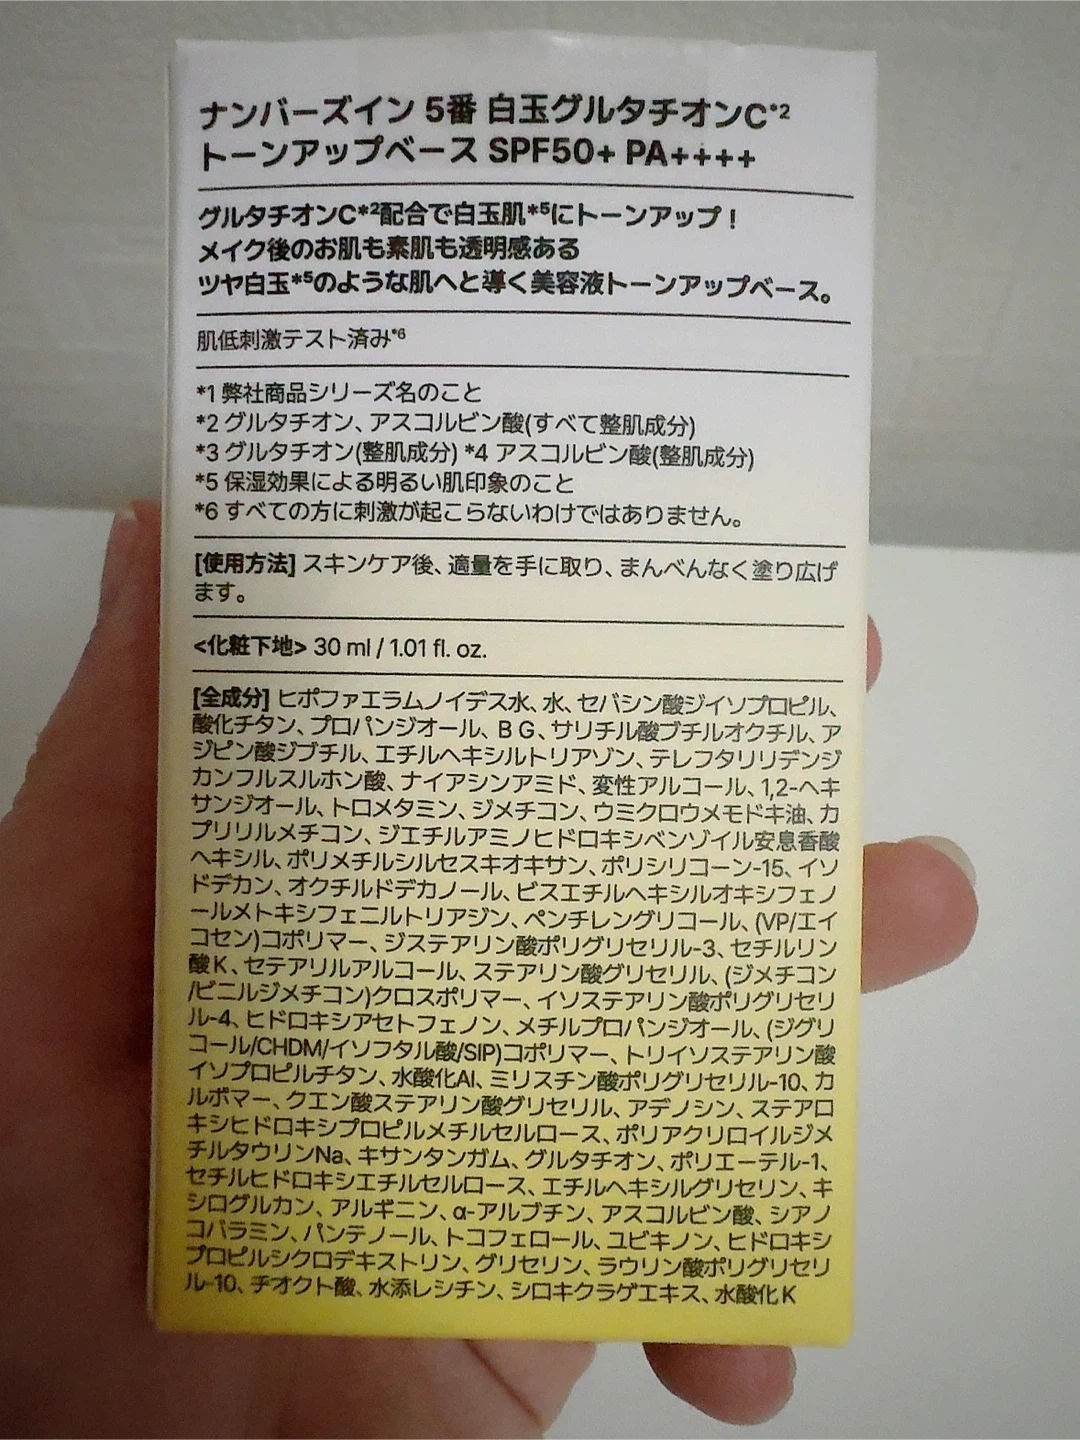 ナンバーズイン 5番 白玉グルタチオンC*2
トーンアップベース SPF50+ PA++++
グルタチオンC*2配合で白玉肌*5にトーンアップ！
メイク後のお肌も素肌も透明感ある
ツヤ白玉*5のような肌へと導く美容液トーンアップベース。
肌低刺激テスト済み*6
*1 弊社商品シリーズ名のこと
*2 グルタチオン、アスコルビン酸(すべて整肌成分)
*3 グルタチオン(整肌成分) *4 アスコルビン酸(整肌成分)
*5 保湿効果による明るい肌印象のこと
*6 すべての方に刺激が起こらないわけではありません。
[使用方法] スキンケア後、適量を手に取り、まんべんなく塗り広げ
ます。
<化粧下地> 30 ml / 1.01 fl. oz.
[全成分] ヒポファエラムノイデス水、水、セバシン酸ジイソプロピル、
酸化チタン、プロパンジオール、BG、サリチル酸ブチルオクチル、ア
ジピン酸ジブチル、エチルヘキシルトリアゾン、テレフタリリデンジ
カンフルスルホン酸、ナイアシンアミド、変性アルコール、1,2-ヘキ
サンジオール、トロメタミン、ジメチコン、ウミクロウメモドキ油、カ
プリリルメチコン、ジエチルアミノヒドロキシベンゾイル安息香酸
ヘキシル、ポリメチルシルセスキオキサン、ポリシリコーン-15、イソ
ドデカン、オクチルドデカノール、ビスエチルヘキシルオキシフェノ
ールメトキシフェニルトリアジン、ペンチレングリコール、(VP/エイ
コセン)コポリマー、ジステアリン酸ポリグリセリル-3、セチルリン
酸K、セテアリルアルコール、ステアリン酸グリセリル、(ジメチコン
/ビニルジメチコン)クロスポリマー、イソステアリン酸ポリグリセリ
ル-4、ヒドロキシアセトフェノン、メチルプロパンジオール、(ジグリ
コール/CHDM/イソフタル酸/SIP)コポリマー、トリイソステアリン酸
イソプロピルチタン、水酸化Al、ミリスチン酸ポリグリセリル-10、カ
ルボマー、クエン酸ステアリン酸グリセリル、アデノシン、ステアロ
キシヒドロキシプロピルメチルセルロース、ポリアクリロイルジメ
チルタウリンNa、キサンタンガム、グルタチオン、ポリエーテル-1、
セチルヒドロキシエチルセルロース、エチルヘキシルグリセリン、キ
シログルカン、アルギニン、α-アルブチン、アスコルビン酸、シアノ
コバラミン、パンテノール、トコフェロール、ユビキノン、ヒドロキシ
プロピルシクロデキストリン、グリセリン、ラウリン酸ポリグリセリ
ル-10、チオクト酸、水添レシチン、シロキクラゲエキス、水酸化K